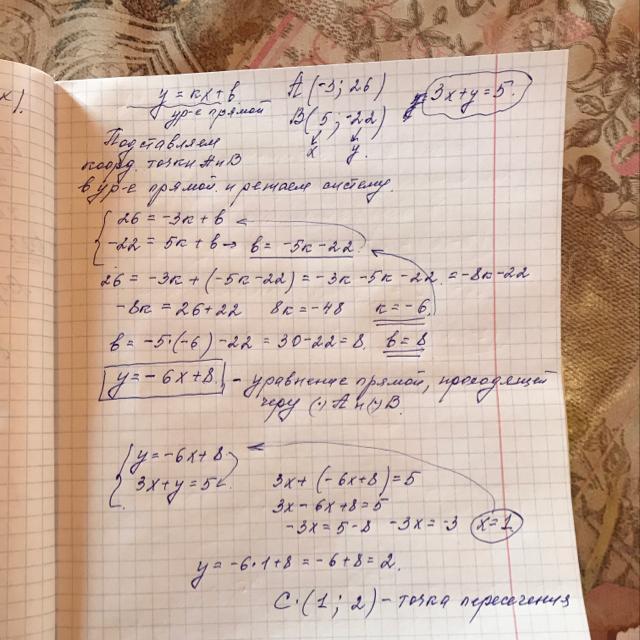 х).
y = кx + в   A (-3; 26)   3x+y=5.
ур-е прямой   B (5; -22)
Подставляем   x   y.
коорд. точки A и B
в ур-е прямой и решаем систему.
26 = -3к + в
-22 = 5к + в → в = -5к - 22.
26 = -3к + (-5к-22) = -3к - 5к - 22 = -8к - 22
-8к = 26+22   8к = -48   к = -6.
в = -5·(-6) - 22 = 30 - 22 = 8.   в = 8
y = -6x + 8. - уравнение прямой, проходящей
через (·) A и (·) B.
y = -6x + 8
3x + y = 5   3x + (-6x+8) = 5
3x - 6x + 8 = 5
-3x = 5 - 8   -3x = -3   x = 1.
y = -6·1 + 8 = -6 + 8 = 2.
C·(1; 2) - точка пересечения